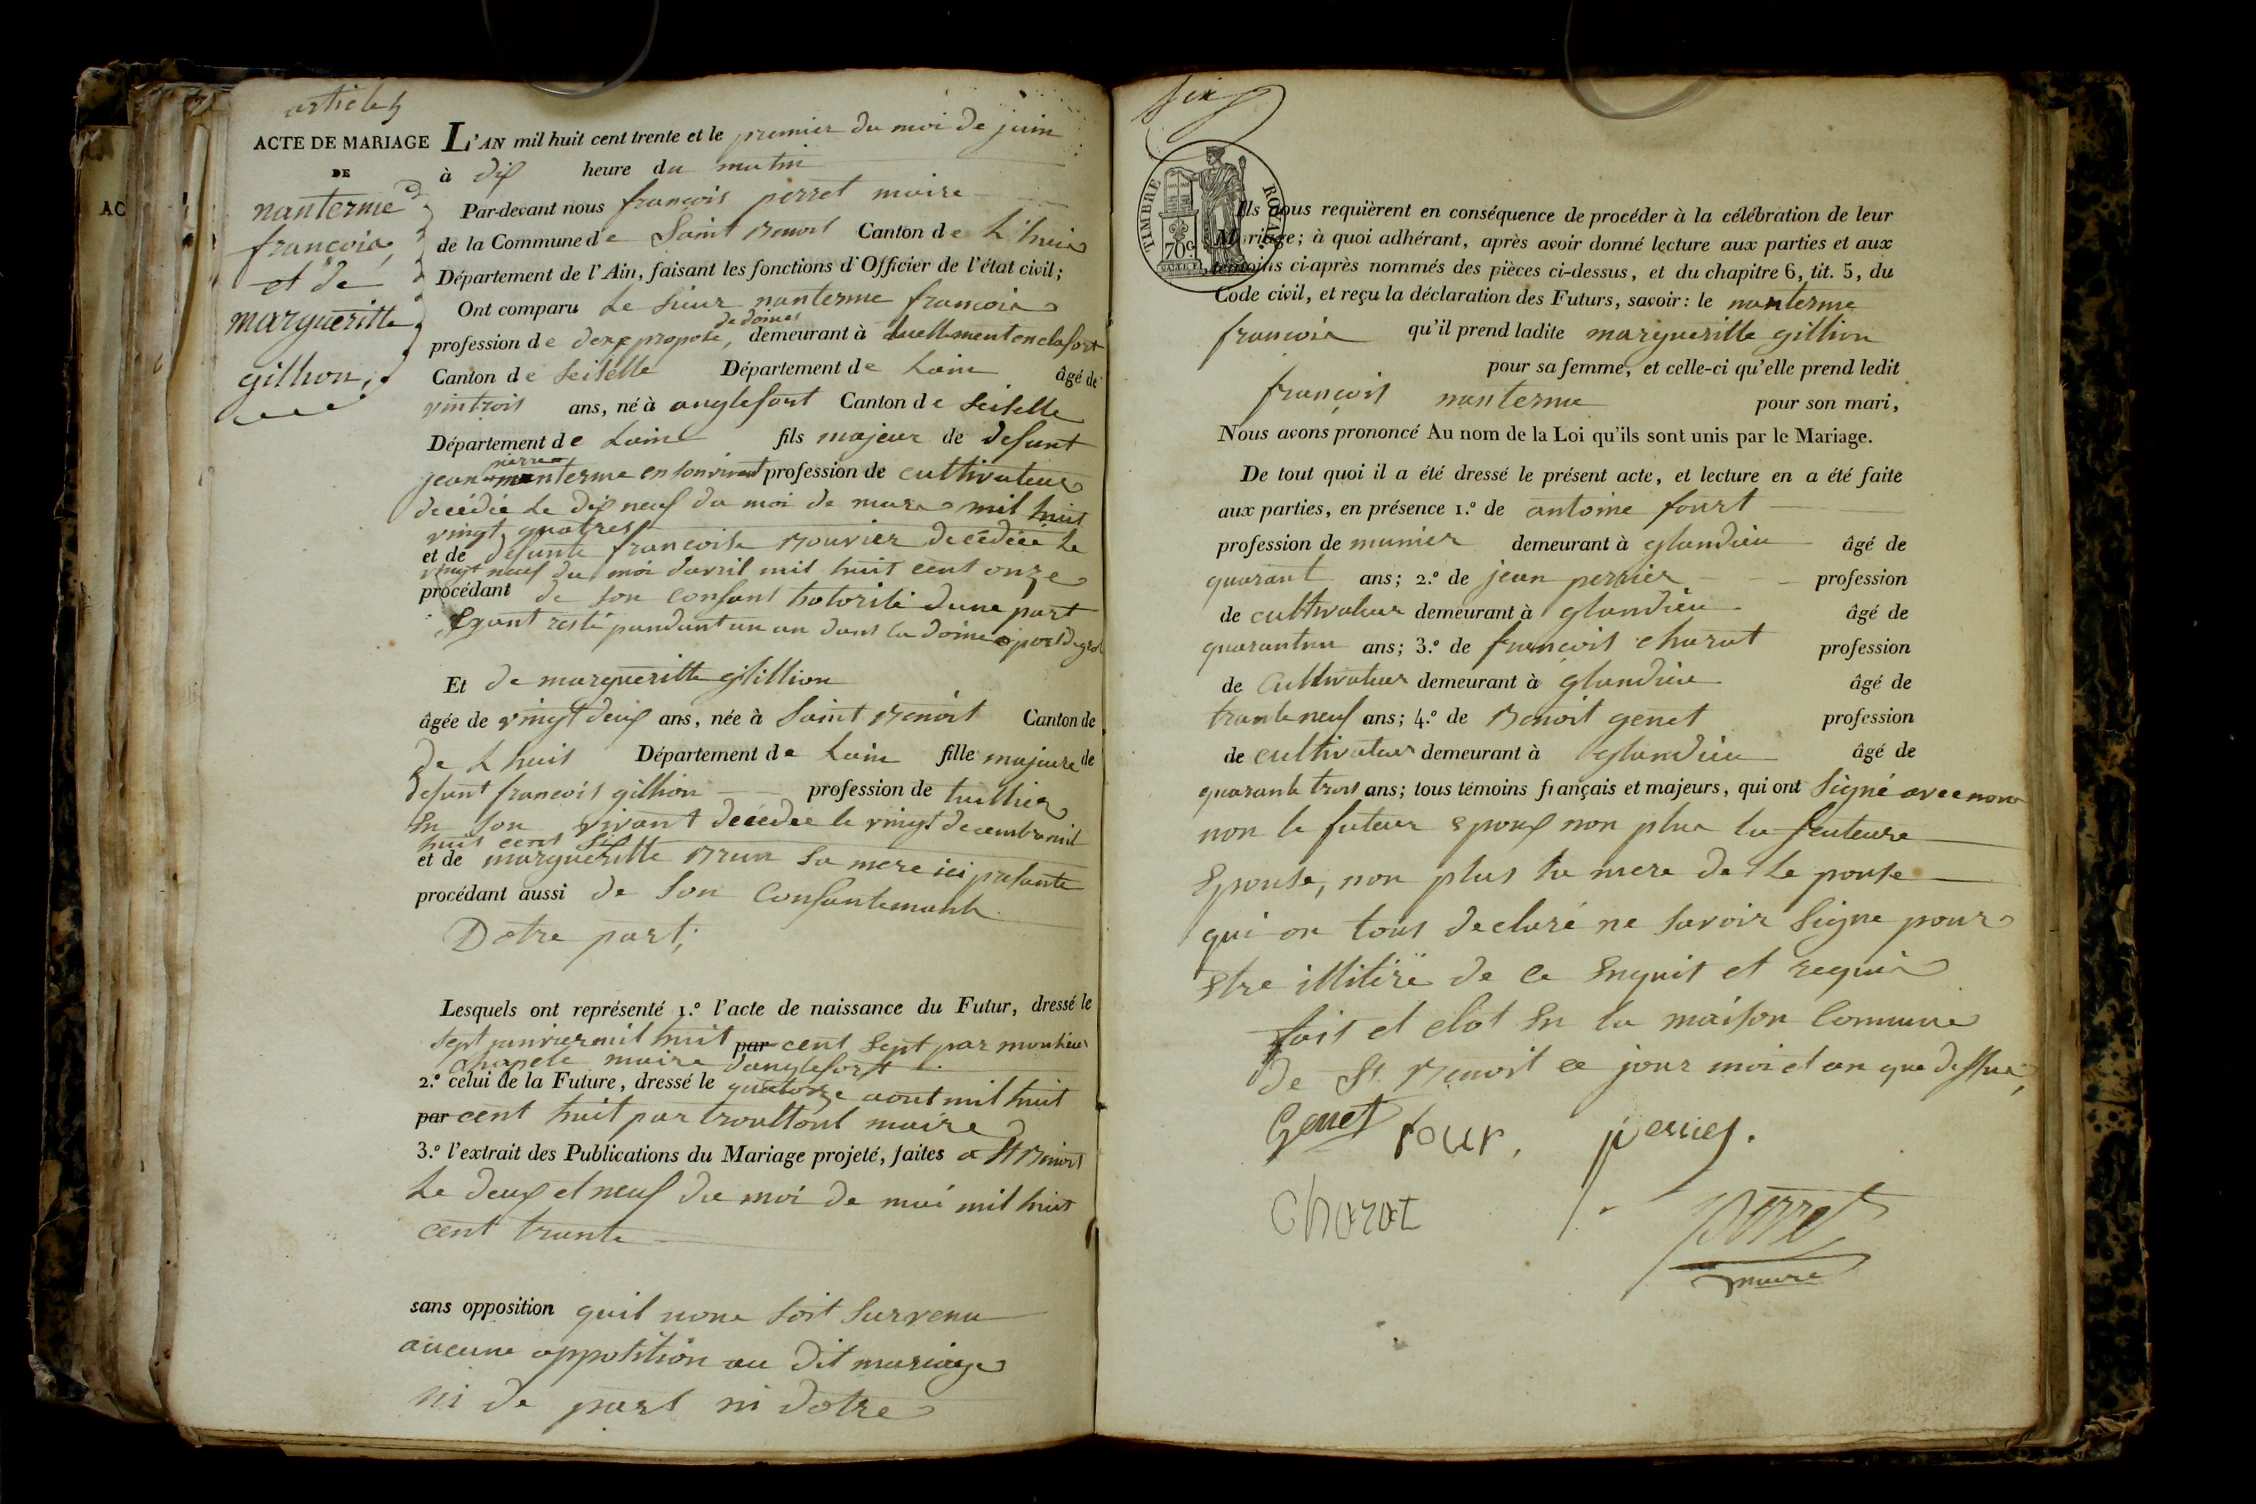 article 5
ACTE DE MARIAGE
DE
nanterme
françois,
et de
margueritte
gillion,
L'AN mil huit cent trente et le premier du moi de juin
à dix heure du matin
Par-devant nous françois perret maire
de la Commune de Saint Benoit Canton de L'huis
Département de l'Ain, faisant les fonctions d'Officier de l'état civil;
Ont comparu Le Sieur nanterme francois
de doines
profession de propose, demeurant à
Canton de Seiselle Département de Lain âgé de
vintrois ans, né à anglefort Canton de Seiselle
Département de Lain fils majeur de defunt
pierre
jean nanterme en son vivant profession de cultivateur
decédée Le dix neuf du moi de mars mil huit
vingt quatres
et de defunte francoise Bouvier decedéee Le
vingt neuf du moi davril mil huit cent onze
procédant de son consant hotorité dune part
Eyant resté pandant un an dans la doine
Et de margueritte gillion
âgée de vingt deux ans, née à Saint Benoit Canton de
de Lhuis Département de Lain fille majeure de
defunt francois gillion profession de tuillier
En son vivant decédee le vingt decembre mil
huit cent
et de margueritte Brun Sa mere ici presante
procédant aussi de Son Consantemant
Dotre part;
Lesquels ont représenté 1.º l'acte de naissance du Futur, dressé le
sept janvier mil huit par cent Sept par monsieur
chapele maire danglefort
2.º celui de la Future, dressé le quatorze aout mil huit
par cent huit par troultout maire
3.º l'extrait des Publications du Mariage projeté, faites a St Benoit
Le deux et neuf du moi de mai mil huit
cent trante
sans opposition quil none soit survenu
aucune oppotition au dit mariage
ni de part ni dotre
six
TIMBRE ROYAL
70c
Ils nous requièrent en conséquence de procéder à la célébration de leur
Mariage; à quoi adhérant, après avoir donné lecture aux parties et aux
témoins ci-après nommés des pièces ci-dessus, et du chapitre 6, tit. 5, du
Code civil, et reçu la déclaration des Futurs, savoir: le nanterme
francois qu'il prend ladite margueritte gillion
pour sa femme, et celle-ci qu'elle prend ledit
françois nanterme pour son mari,
Nous avons prononcé Au nom de la Loi qu'ils sont unis par le Mariage.
De tout quoi il a été dressé le présent acte, et lecture en a été faite
aux parties, en présence 1.º de antoine fourt
profession de munier demeurant à glandieu âgé de
quarant ans; 2.º de jean perrier profession
de cultivateur demeurant à glandieu âgé de
quarantun ans; 3.º de françois charat profession
de Cultivateur demeurant à glandieu âgé de
trante neuf ans; 4.º de Benoit genet profession
de cultivateur demeurant à glandieu âgé de
quarante trois ans; tous témoins français et majeurs, qui ont Signé avec nous
non le futeur Epoux non plus la feuteure
Epouse, non plus la mere de Le pouse
qui on tous declaré ne savoir Signe pour
Etre illitiré de ce Enquit et requis
fait et clot En la maison Commune
de St. Benoit ce jour moi et an que dessus,
Genet four, perrier.
charat
perret
maire